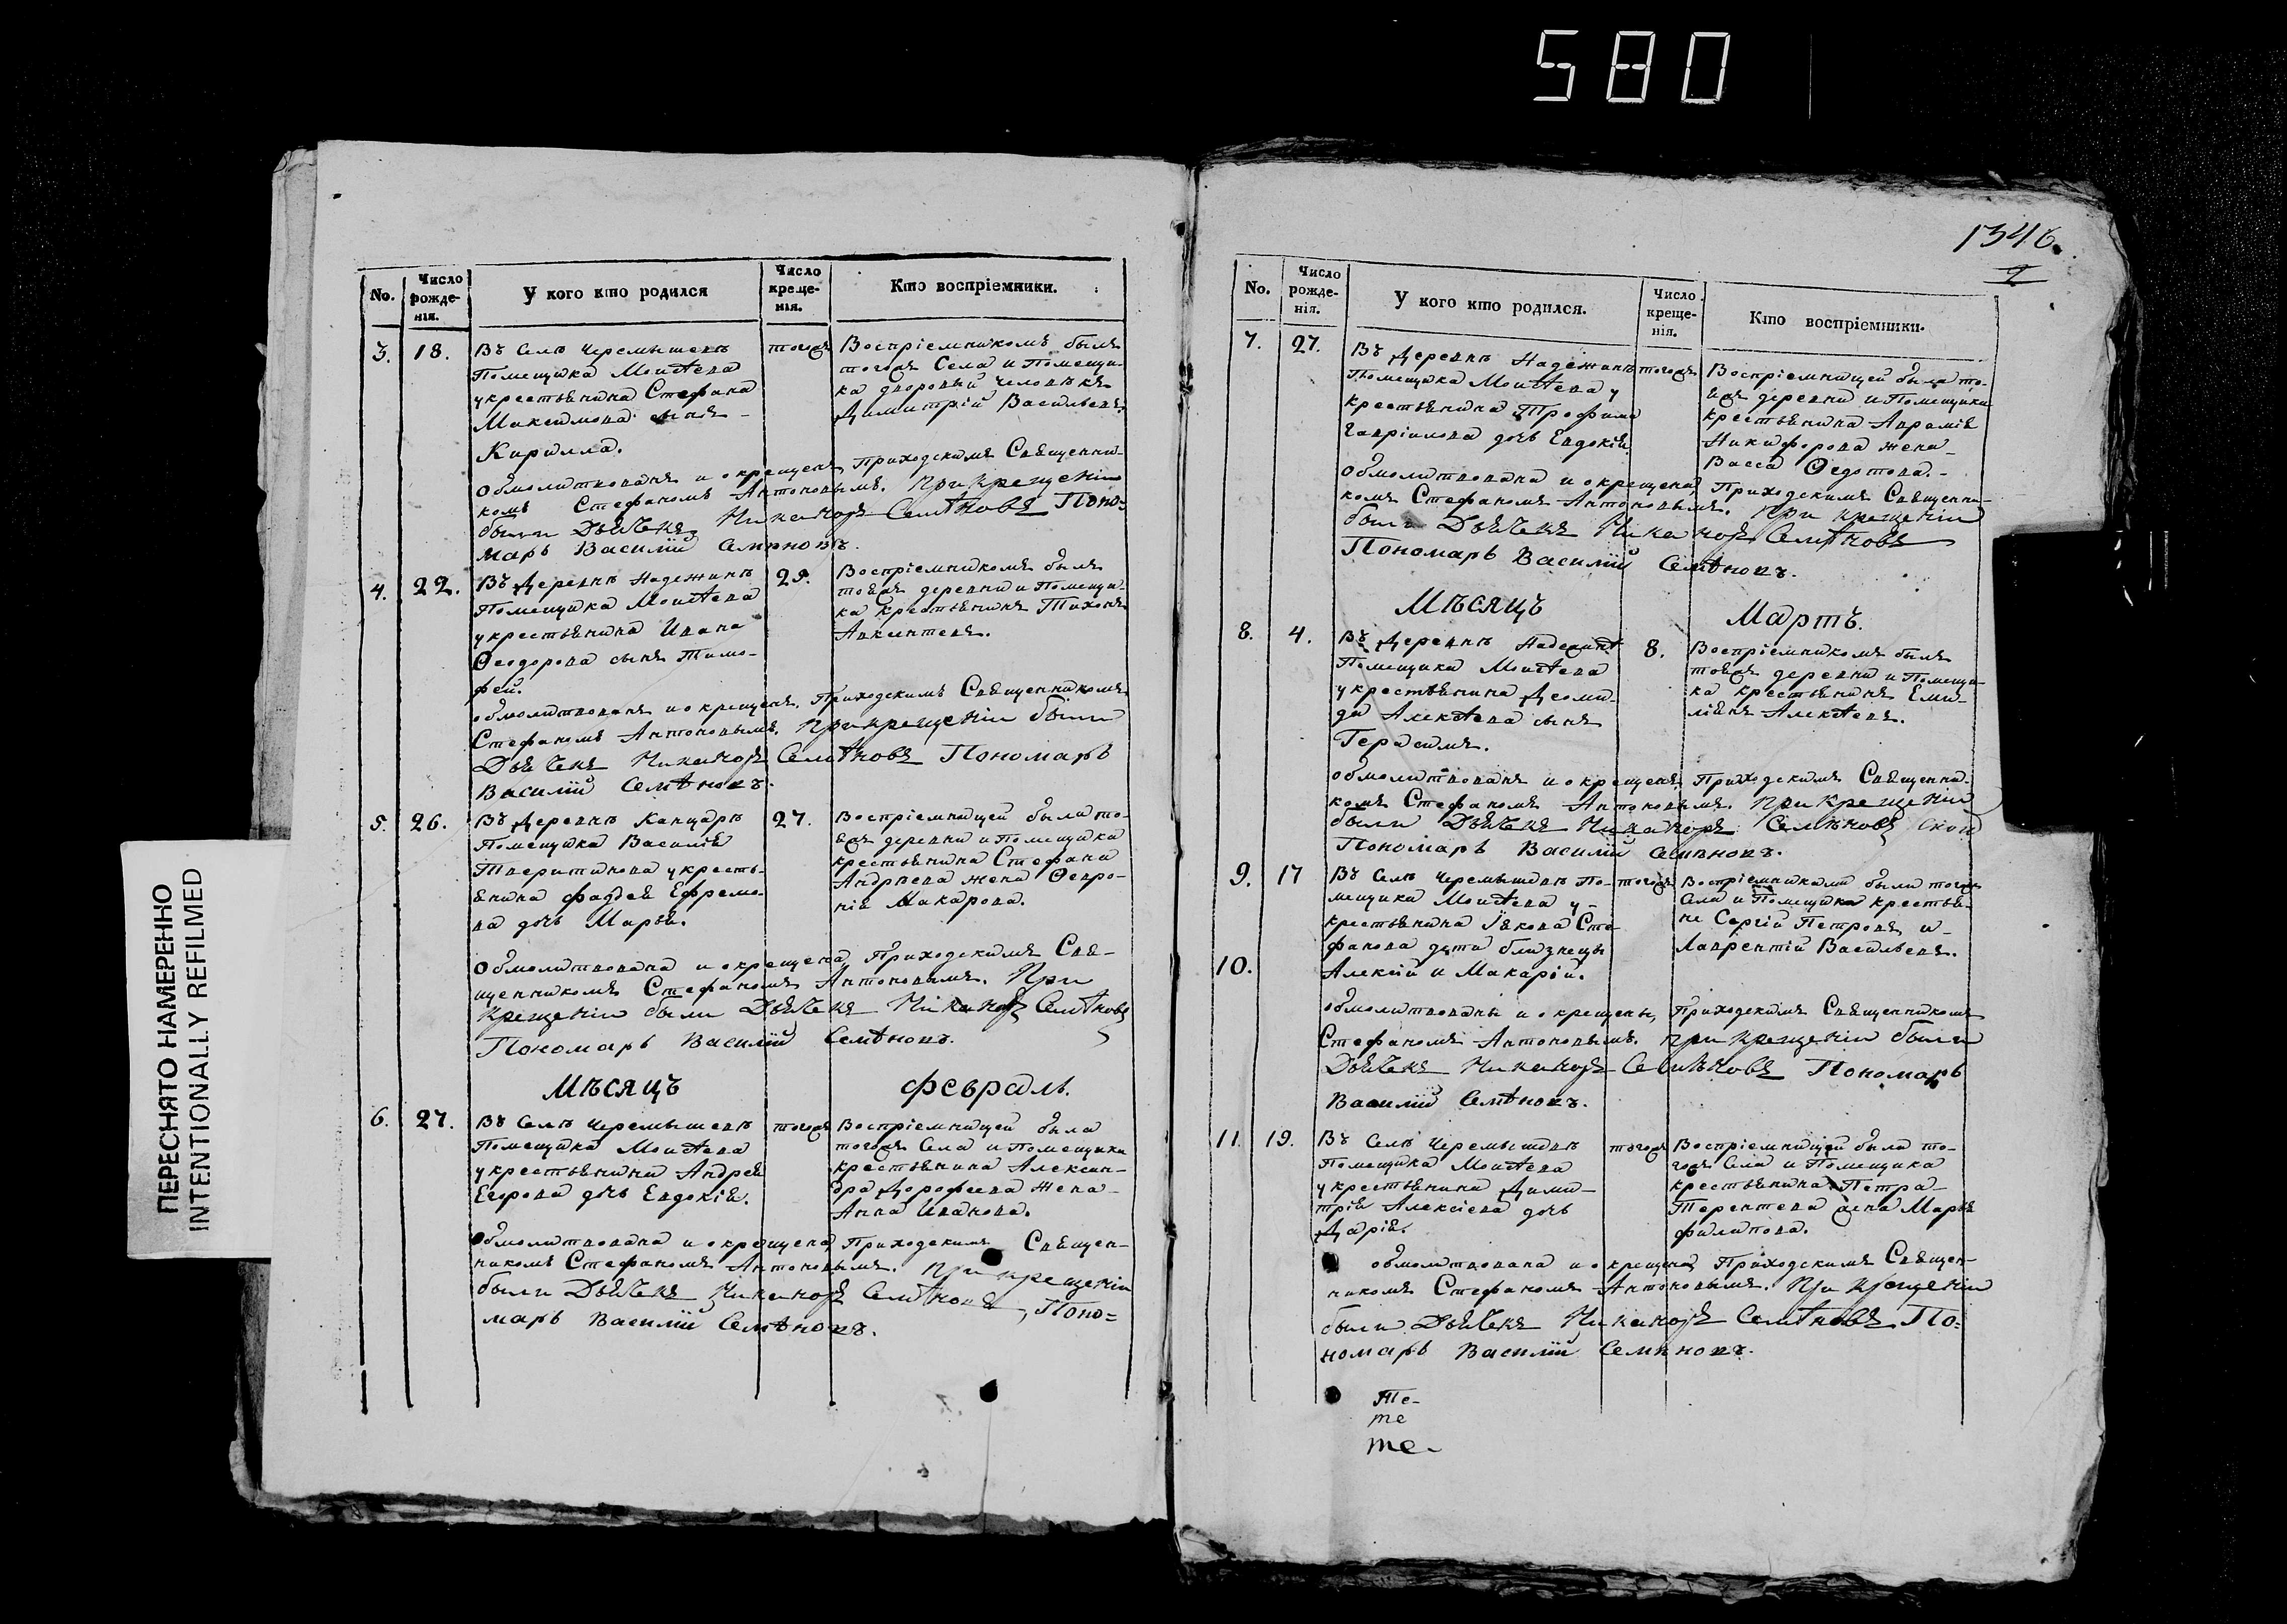 580
1346.
2
ПЕРЕСНЯТО НАМЕРЕННО
INTENTIONALLY REFILMED
No.
Число рожде-нія.
У кого кто родился
Число креще-нія.
Кто воспріемники.
3.
18.
Въ Селѣ Черемышевѣ
Помещика Моисѣева
у крестьянина Стефана
Максимова сынъ
Кирилла.
тогоже
Воспріемникомъ былъ
тогоже Села и Помещи-
ка дворовый человѣкъ
Димитрій Васильевъ
Обмолитвованъ и окрещенъ Приходскимъ Священни-
комъ Стефаномъ Антоновымъ. При крещеніи
были Дьячекъ Никаноръ Семѣновъ Поно-
марь Василій Семѣновъ.
4.
22.
Въ Деревнѣ Надежинѣ
Помещика Моисѣева
у крестьянина Ивана
Ѳеодорова сынъ Тимо-
фей.
29.
Воспріемникомъ былъ
тояже деревни и Помещи-
ка крестьянинъ Тихонъ
обмолитвованъ и окрещенъ Приходскимъ Священникомъ
Стефаномъ Антоновымъ. При крещеніи были
Дьячекъ Никаноръ Семѣновъ Пономарь
Василій Семѣновъ.
5.
26.
Въ Деревнѣ Канцарѣ
Помещика Василія
Тверитинова у кресть-
янина Фаддея Ефремо-
ва дочь Марья.
27.
Воспріемницей была то-
яже деревни и Помещика
крестьянина Стефана
Андрѣева жена Ѳевро-
нія Макарова.
Обмолитвована и окрещена Приходскимъ Свя-
щенникомъ Стефаномъ Антоновымъ. При
крещеніи были Дьячекъ Никаноръ Семѣновъ
Пономарь Василій Семѣновъ.
Мѣсяцъ Февраль.
6.
27.
Въ Селѣ Черемышевѣ
Помещика Моисѣева
у крестьянина Андрея
Егорова дочь Евдокія.
тогоже
Воспріемницей была
тогоже Села и Помещика
крестьянина Алексан-
дра Дорофеева жена
Анна Иванова.
Обмолитвована и окрещена Приходскимъ Священ-
никомъ Стефаномъ Антоновымъ. При крещеніи
были Дьячекъ Никаноръ Семѣновъ, Поно=
марь Василій Семѣновъ.
No.
Число рожде-нія.
У кого кто родился.
Число креще-нія.
Кто воспріемники.
7.
27.
Въ Деревнѣ Надежинѣ
Помещика Моисѣева у
крестьянина Трофима
Гавріилова дочь Евдокія.
тогоже
Воспріемницей была то-
яже деревни и Помещика
крестьянина Аврамія
Никифорова жена
Васса Ѳедотова.
Обмолитвована и окрещена Приходскимъ Священни-
комъ Стефаномъ Антоновымъ. При крещеніи
были Дьячекъ Никаноръ Семѣновъ
Пономарь Василій Семѣновъ.
Мѣсяцъ Мартъ.
8.
4.
Въ Деревнѣ Надежинѣ
Помещика Моисѣева
у крестьянина Деоми-
да Алексѣева сынъ
Герасимъ.
8.
Воспріемникомъ былъ
тояже деревни и Помещи-
ка крестьянинъ Еми-
ліянъ Алексѣевъ.
обмолитвованъ и окрещенъ Приходскимъ Священни-
комъ Стефаномъ Антоновымъ. При крещеніи
были Дьячекъ Никаноръ Семѣновъ
Пономарь Василій Семѣновъ.
9.
17
Въ Селѣ Черемышевѣ По-
мещика Моисѣева у
крестьянина Іякова Сте-
фанова дети близнецы
10.
Алексій и Макарій.
тогоже
Воспріемниками были тогоже
Села и Помещика крестья-
не Сергій Петровъ и
Лаврентій Васильевъ.
обмолитвованы и окрещены, Приходскимъ Священникомъ
Стефаномъ Антоновымъ. При крещеніи были
Дьячекъ Никаноръ Семѣновъ Пономарь
Василій Семѣновъ.
11.
19.
Въ Селѣ Черемышевѣ
Помещика Моисѣева
у крестьянина Дими-
трія Алексіева дочь
Дарія.
тогоже
Воспріемницей была то-
гоже Села и Помещика
крестьянина Петра
Терентева жена Марья
Филипова.
обмолитвована и окрещена Приходскимъ Священ-
никомъ Стефаномъ Антоновымъ. При крещеніи
были Дьячекъ Никаноръ Семѣновъ По=
номарь Василій Семѣновъ.
Те-
те
те-